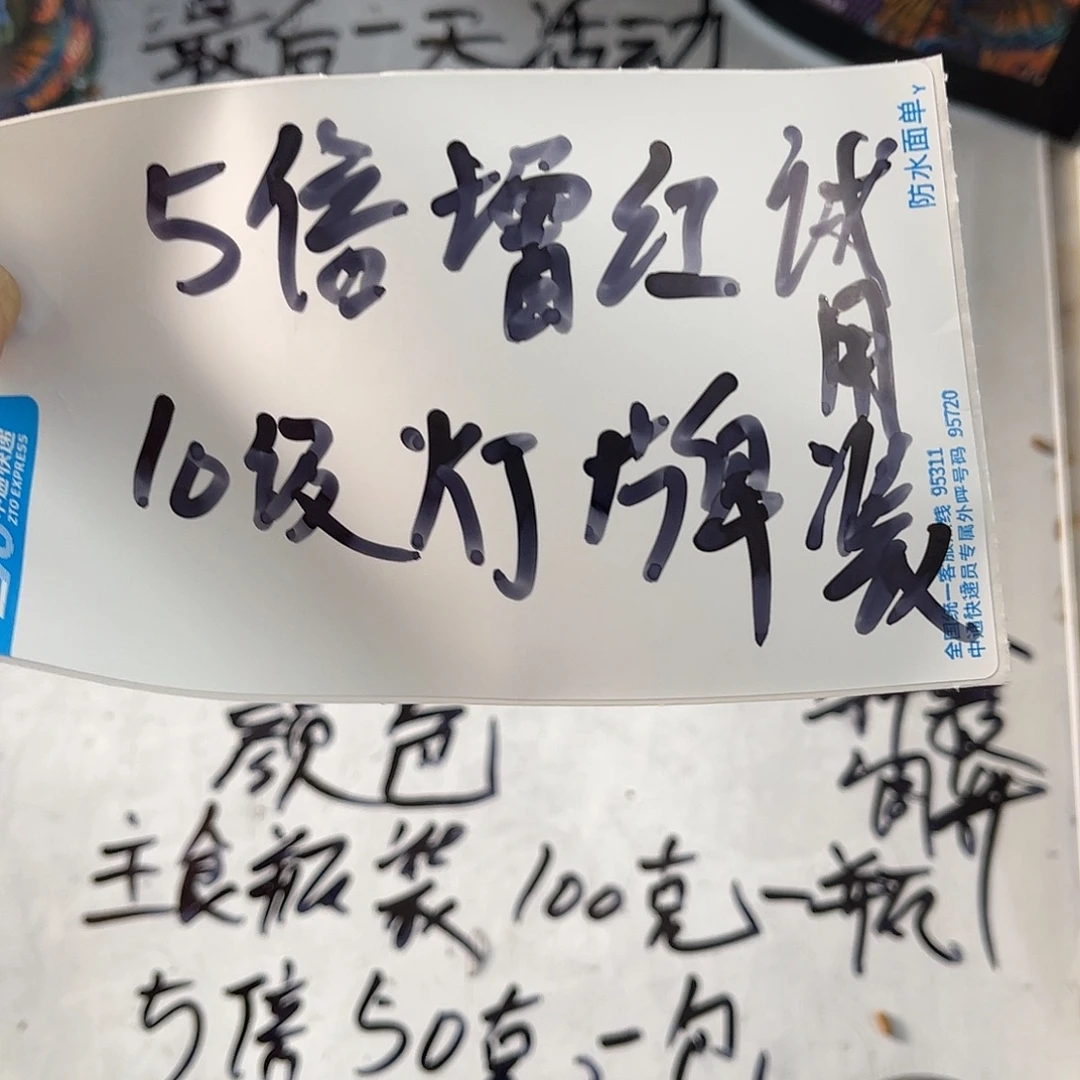 最后一天活动
5倍增红试用
10级灯牌装
防水面单
全国统一客服热线 95311
中通快递员专属外呼号码 95720
中通快递
ZTO EXPRESS
颜色
主食瓶装 100克一瓶
5倍 50克一包